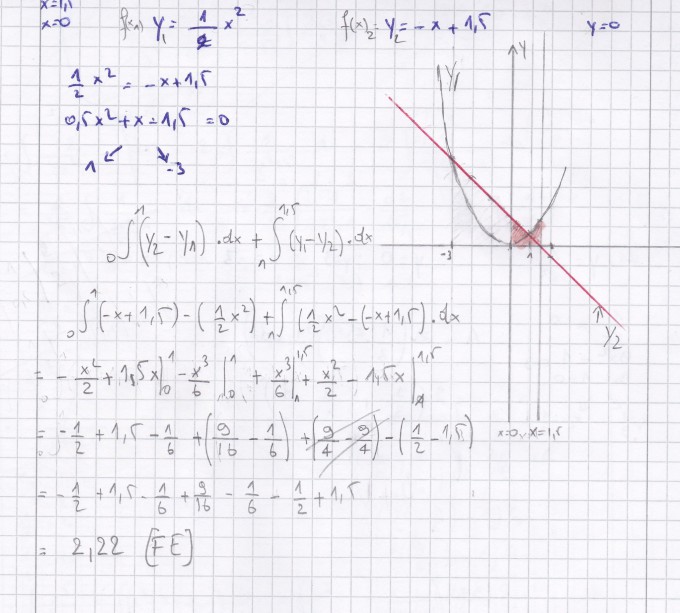 x=1,5
x=0
f(x₁) y₁ = 1/2 x²
f(x)₂ = y₂ = -x + 1,5
y=0
1/2 x² = -x+1,5
0,5x²+x-1,5 = 0
1 ↙ ↘ -3
₀∫¹ (y₂ - y₁) · dx + ₁∫^1,5 (y₁-y₂) · dx
₀∫¹ (-x+1,5) - (1/2 x²) + ₁∫^1,5 (1/2 x² - (-x+1,5) · dx
= - x²/2 + 1,5x |₀¹ - x³/6 |₀¹ + x³/6 |₁^1,5 + x²/2 - 1,5x |₁^1,5
= -1/2 + 1,5 - 1/6 + (9/16 - 1/6) + (9/4 - 9/4) - (1/2 - 1,5)
= -1/2 + 1,5 - 1/6 + 9/16 - 1/6 - 1/2 + 1,5
= 2,22 [FE]
y₁
y
-3
1
y₂
x=0, x=1,5